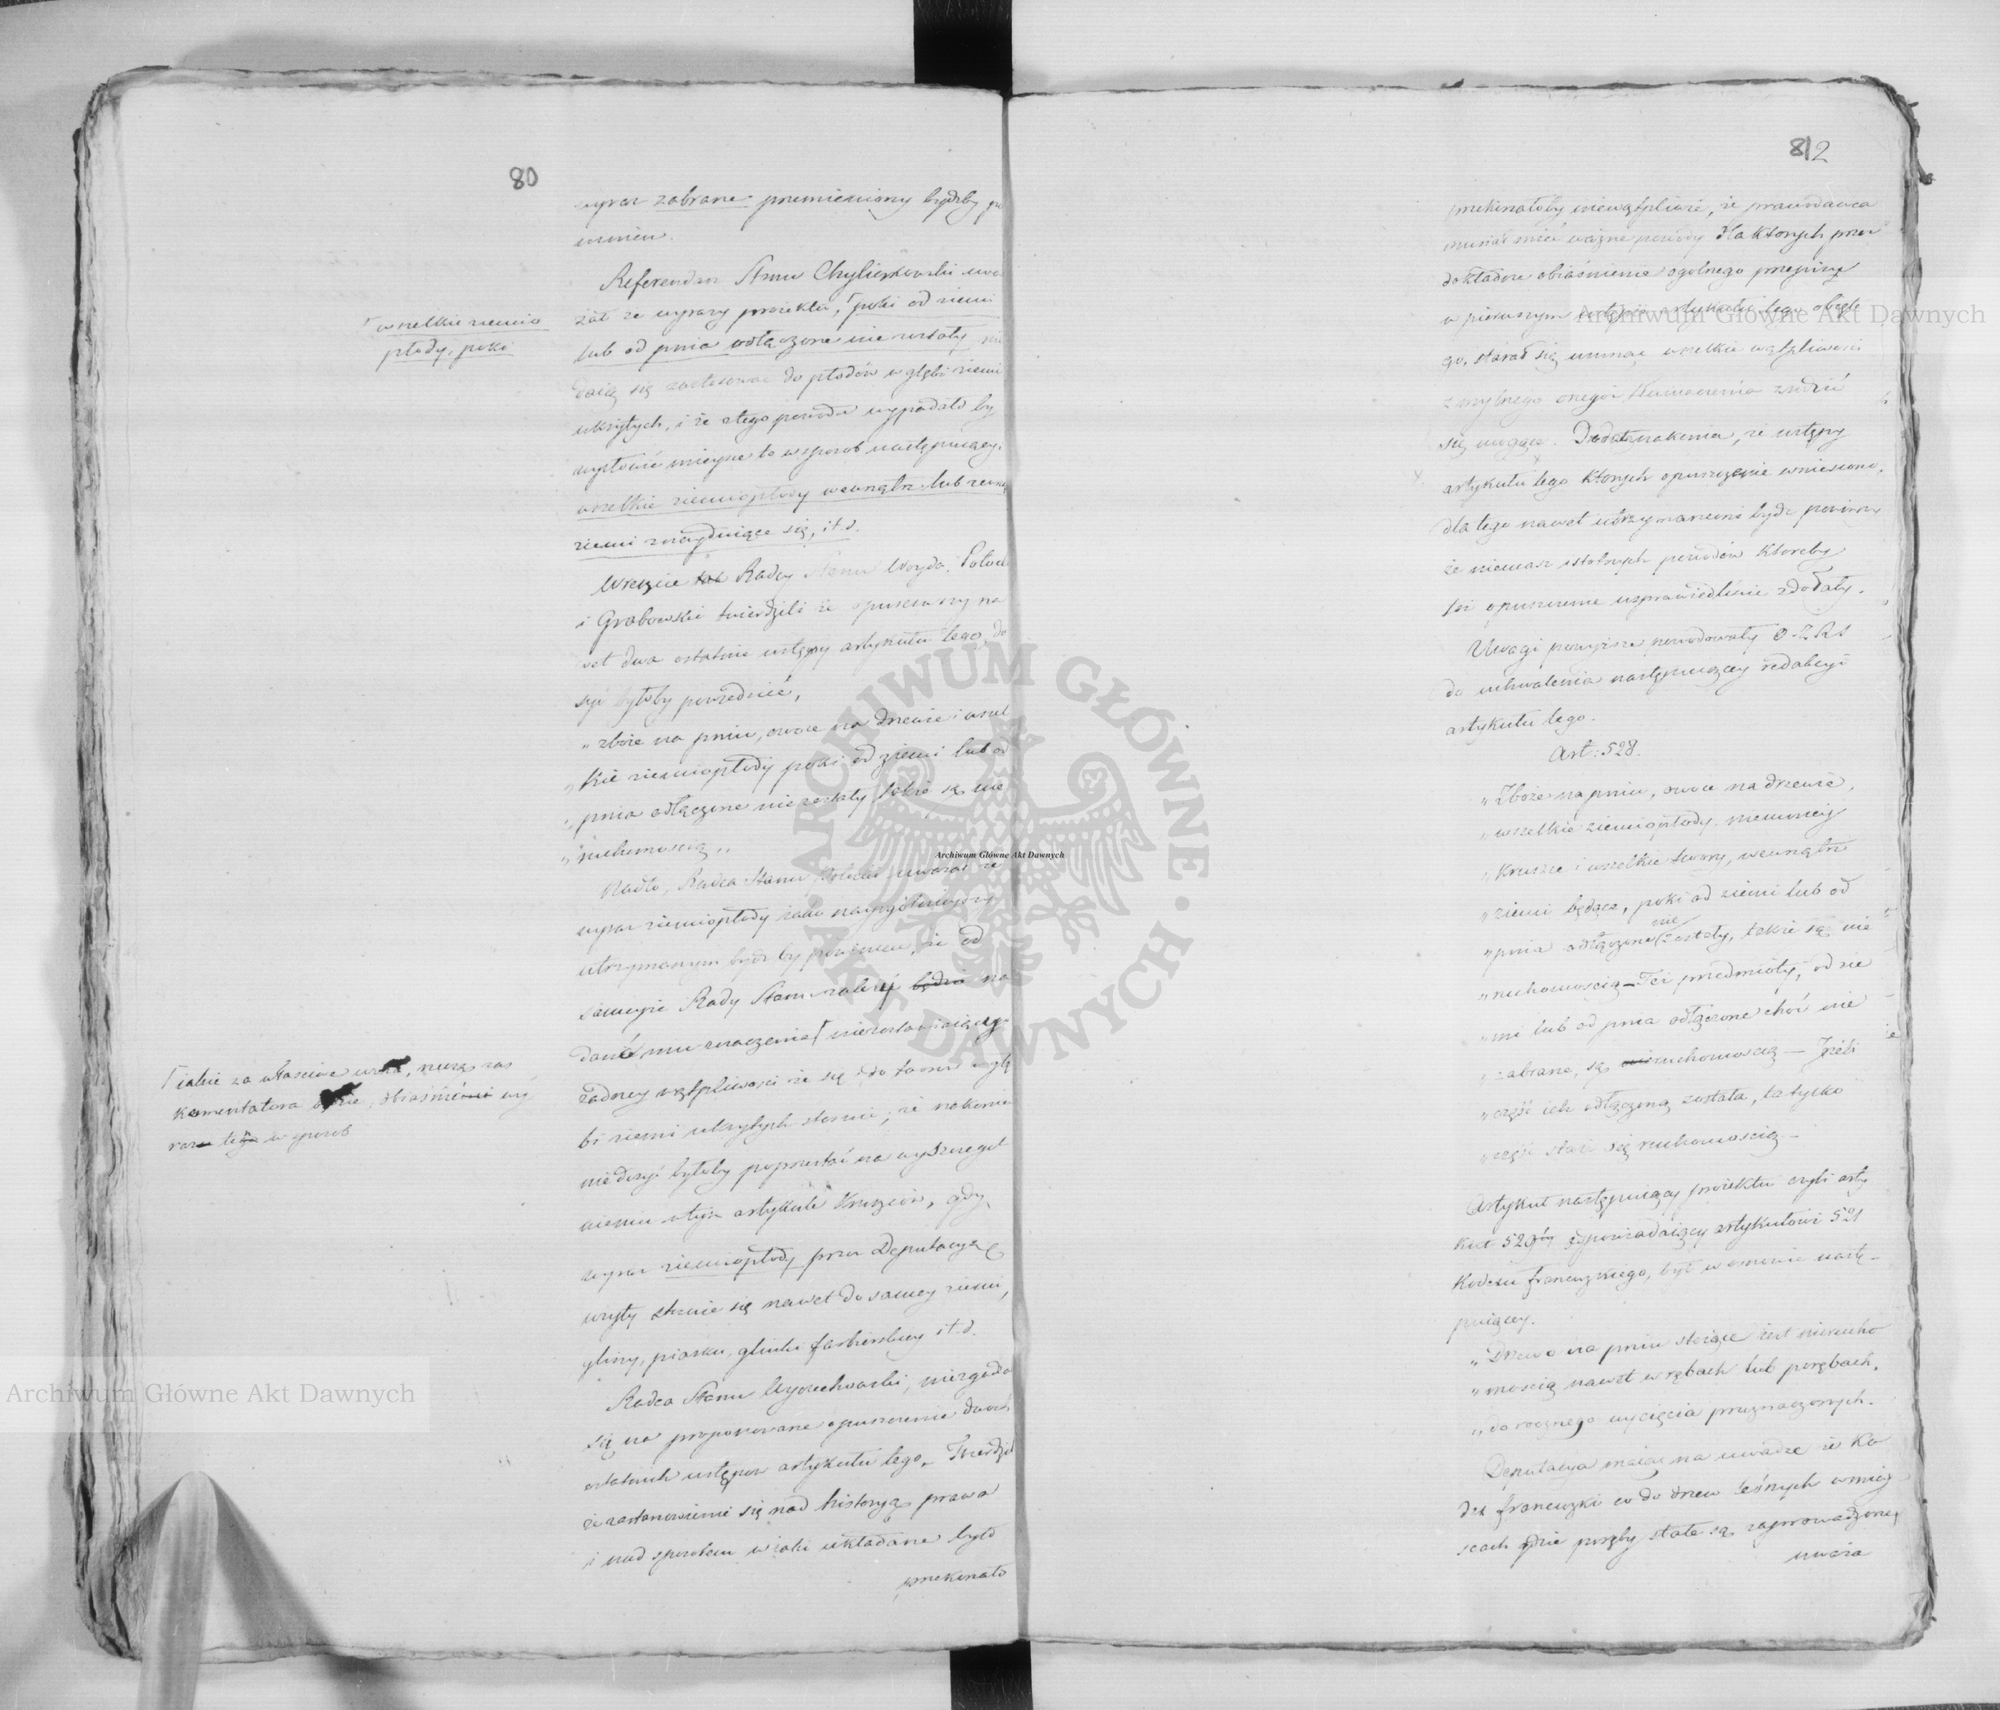 80
wyraz zabrane przemieniony bydźby po
winien.
Referendarz Stanu Chyliczkowski uwa
żał że wyrazy proiektu, ⌈poki od ziemi
lub od pnia odłączone nie zostały nie
daią się zastosować do płodów w głębi ziemi
ukrytych, i że z tego powodu wypadało by
wysłowić mieysce to w sposob następuiący.
wszelkie ziemiopłody wewnątrz lub zewną
ziemi znayduiące się, i t. d.
⌈wszelkie ziemio
płody, poki
Wreszcie Radcy Stanu Woyda, Potocki
i Grabowski twierdzili że opuściwszy na
wet dwa ostatnie ustępy artykułu tego, do
syć byłoby powiedzieć,
„zboże na pniu, owoce na drzewie i wszel
„kie ziemiopłody poki od ziemi lub od
„pnia odłączone nie zostały takie są nie
„ruchomością„
Nadto, Radca Stanu Potocki uważał że
wyraz ziemiopłody iako nayogólnieyszy
utrzymanym bydz by powinien, że od
sameyże Rady Stanu należy będzie na
danie mu znaczenia ⌈niezostawiaiącego
żadney wątpliwości że się i do tworów w głę
bi ziemi ukrytych stosuie; że nakoniec
nie dosyć byłoby poprzestać na wyszczegól
nieniu w tym artykule kruszców, gdy
wyraz ziemiopłody przez Deputacyą
użyty ściąga się nawet do samey ziemi,
gliny, piasku, glinki farbierskiey i t. d.
⌈iakie za właściwe uzna, rzeczą zaś
komentatora będzie, obiaśnienie wy
razu tego w sposob
Radca Stanu Wyczechowski, niezgadzał
się na proponowane opuszczenie dwoch
ostatnich ustępow artykułu tego. Twierdził
że zastanowienie się nad historyą prawa
i nad sposobem w iaki układane było
przekonało
812
przekonałoby niewątpliwie, że prawodawca
musiał mieć ważne powody dla ktorych przez
dokładne obiaśnienie ogolnego przepisu
w pierwszym ustępie artykułu tego obięte
go, starał się usunąć wszelkie wątpliwości
z mylnego onegoż tłumaczenia zrodzić
się mogące. Dodał nakoniec, że ustępy
artykułu tego ktorych opuszczenie wniesiono,
dla tego nawet utrzymanemi bydź powinny
że niemasz istotnych powodów ktoreby
to opuszczenie usprawiedliwić zdołały.
Uwagi powyższe powodowały O. Z. R. S
do uchwalenia następuiącey redakcyi
artykułu tego.
Art: 528.
„Zboże na pniu, owoce na drzewie,
„wszelkie ziemiopłody, niemniey
„kruszce i wszelkie twory, wewnątrz
„ziemi będące, poki od ziemi lub od
„pnia odłączone nie zostały, takie są nie
„ruchomością – Też przedmioty, od zie
„mi lub od pnia odłączone choć nie
„zabrane, są ruchomością – Jeżeli
„część ich odłączoną została, ta tylko
„część staie się ruchomością –
Artykuł następuiący proiektu czyli arty
kuł 529ty odpowiadaiący artykułowi 521
Kodexu francuzkiego, był w osnowie nastę–
puiącey.
„Drzewo na pniu stoiące iest nierucho
„mością nawet w rębach lub porębach,
„do rocznego wycięcia przeznaczonych.
Deputacya maiąc na uwadze że Ko
dex francuzki co do drzew leśnych w miey
scach gdzie poręby stałe są zaprowadzone,
uważa